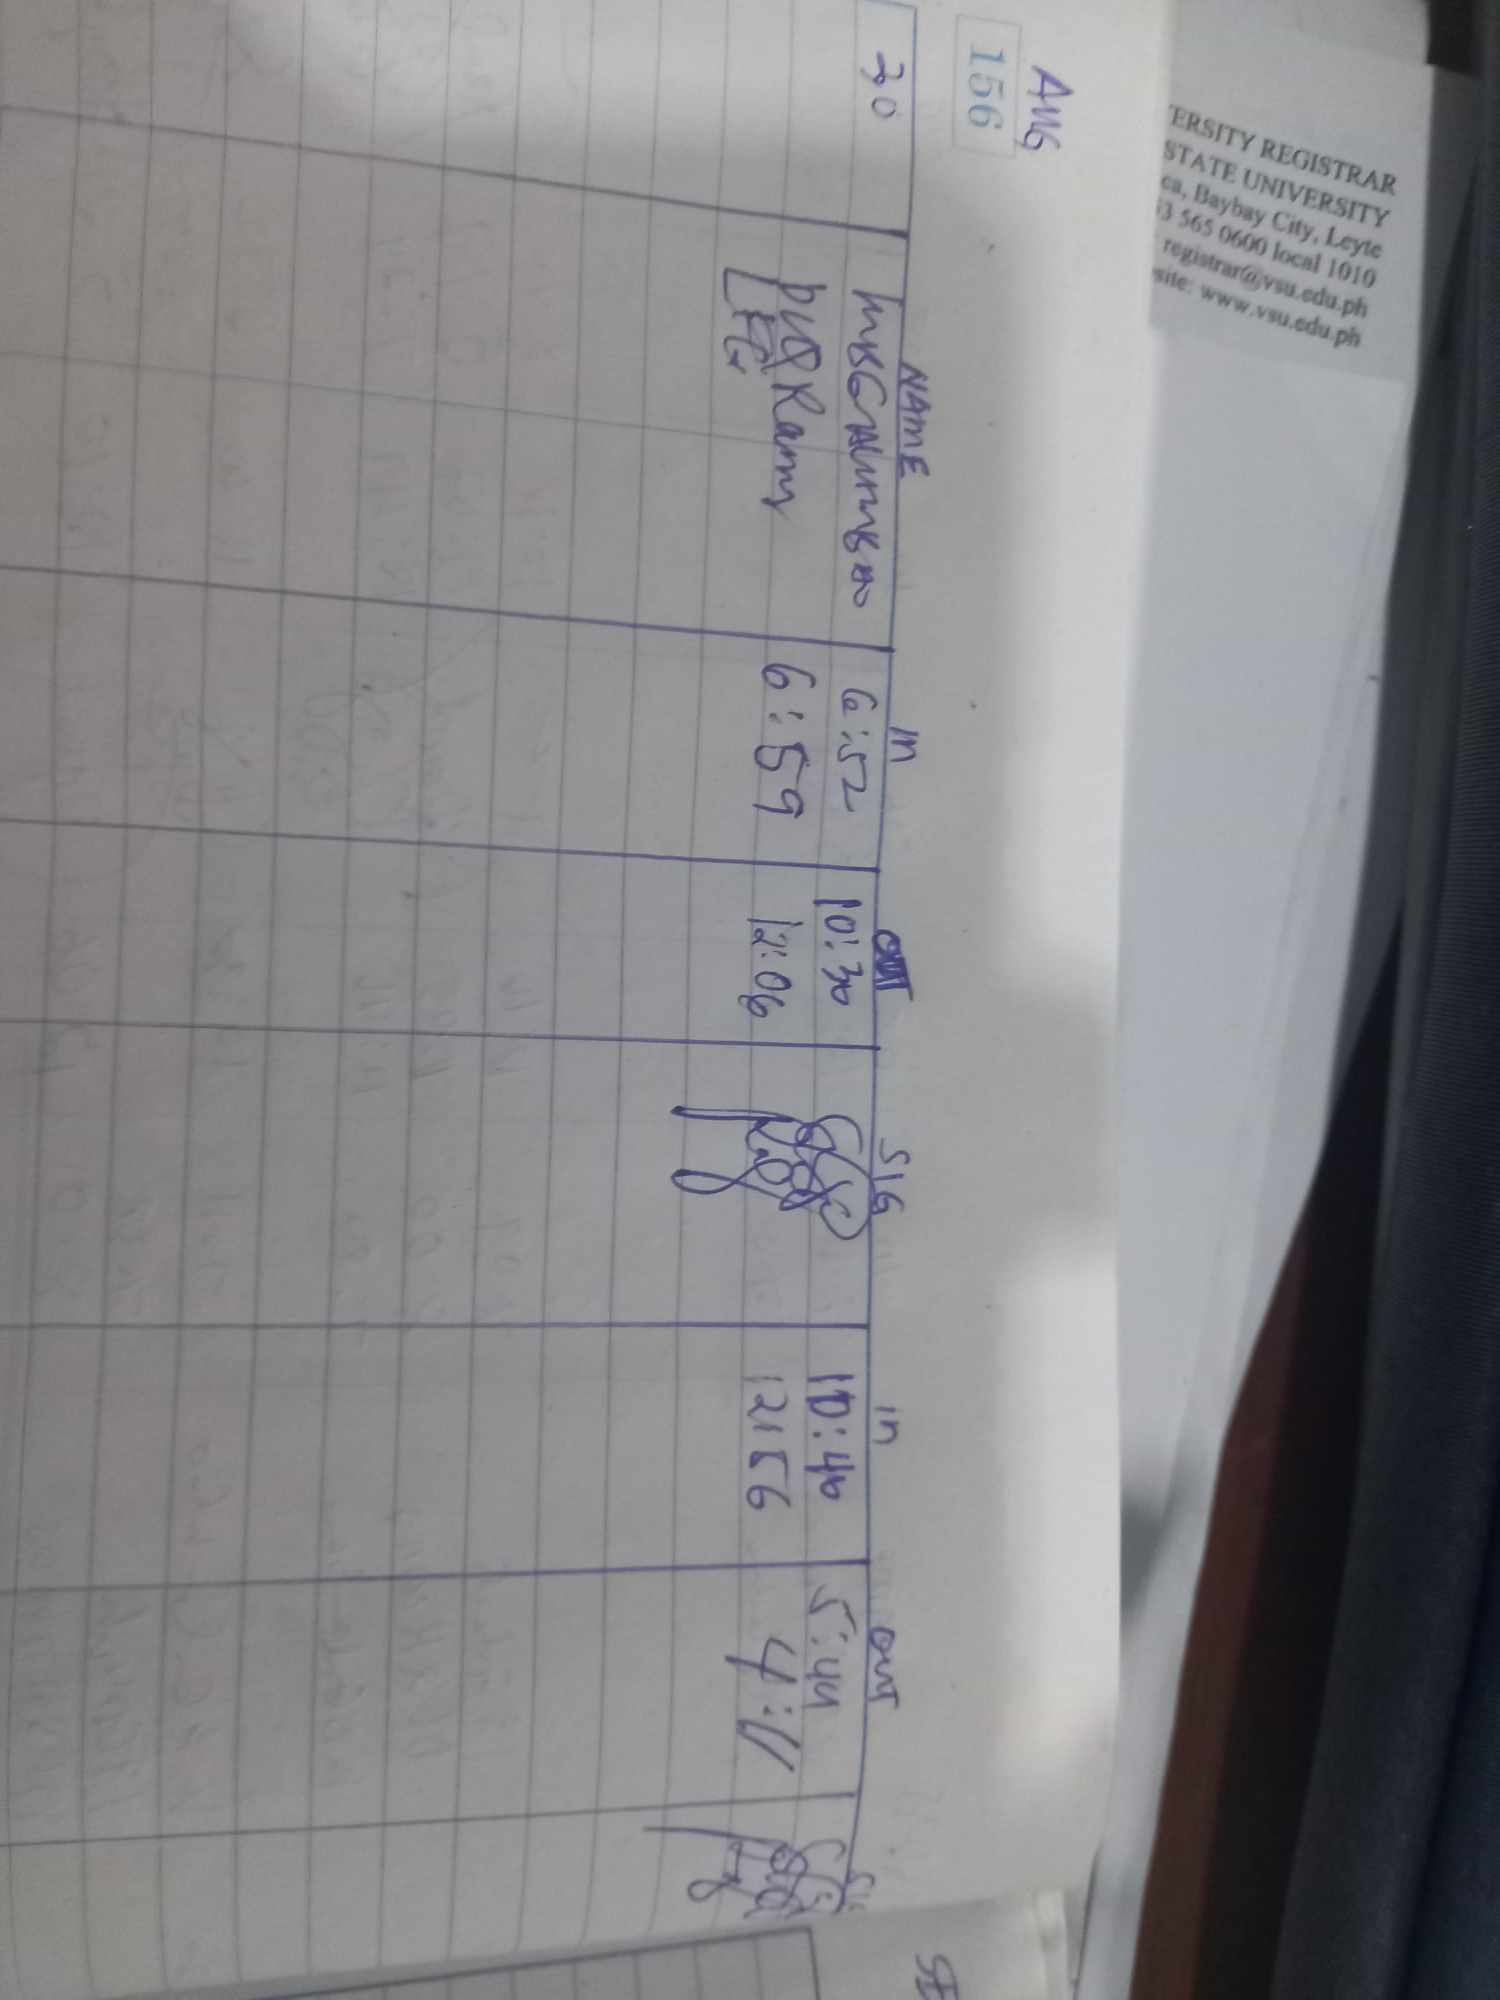 ERSITY REGISTRAR
STATE UNIVERSITY
ca, Baybay City, Leyte
3 565 0600 local 1010
registrar@vsu.edu.ph
site: www.vsu.edu.ph
AUG
156
NAME IN OUT SIG IN OUT SIG
30 6:52 10:30 10:40 5:44
6:59 12:06 12:56 4:11